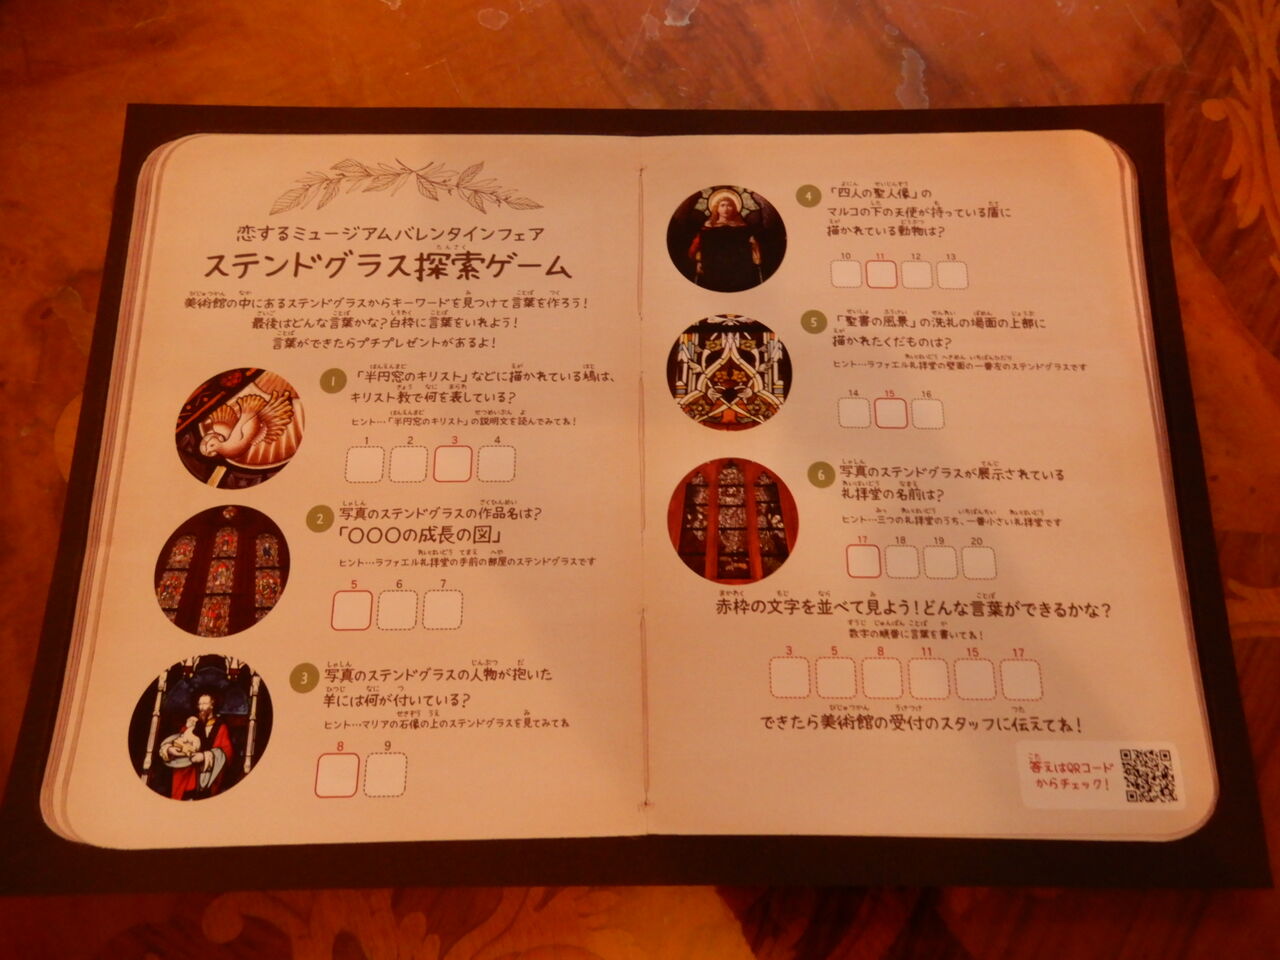 恋するミュージアムバレンタインフェア
ステンドグラス探索ゲーム
たんさく
美術館の中にあるステンドグラスからキーワードを見つけて言葉を作ろう!
最後はどんな言葉かな?白枠に言葉をいれよう!
言葉ができたらプチプレゼントがあるよ!
1
「半円窓のキリスト」などに描かれている鳩は、
キリスト教で何を表している?
ヒント…「半円窓のキリスト」の説明文を読んでみてね!
1 2 3 4
2
写真のステンドグラスの作品名は?
「○○○の成長の図」
ヒント…ラファエル礼拝堂の手前の部屋のステンドグラスです
5 6 7
3
写真のステンドグラスの人物が抱いた
羊には何が付いている?
ヒント…マリアの石像の上のステンドグラスを見てみてね
8 9
4
「四人の聖人像」の
マルコの下の天使が持っている盾に
描かれている動物は?
10 11 12 13
5
「聖書の風景」の洗礼の場面の上部に
描かれたくだものは?
ヒント…ラファエル礼拝堂の壁面の一番左のステンドグラスです
14 15 16
6
写真のステンドグラスが展示されている
礼拝堂の名前は?
ヒント…三つの礼拝堂のうち、一番小さい礼拝堂です
17 18 19 20
赤枠の文字を並べて見よう!どんな言葉ができるかな?
数字の順番に言葉を書いてね!
3 5 8 11 15 17
できたら美術館の受付のスタッフに伝えてね!
答えはQRコード
からチェック!